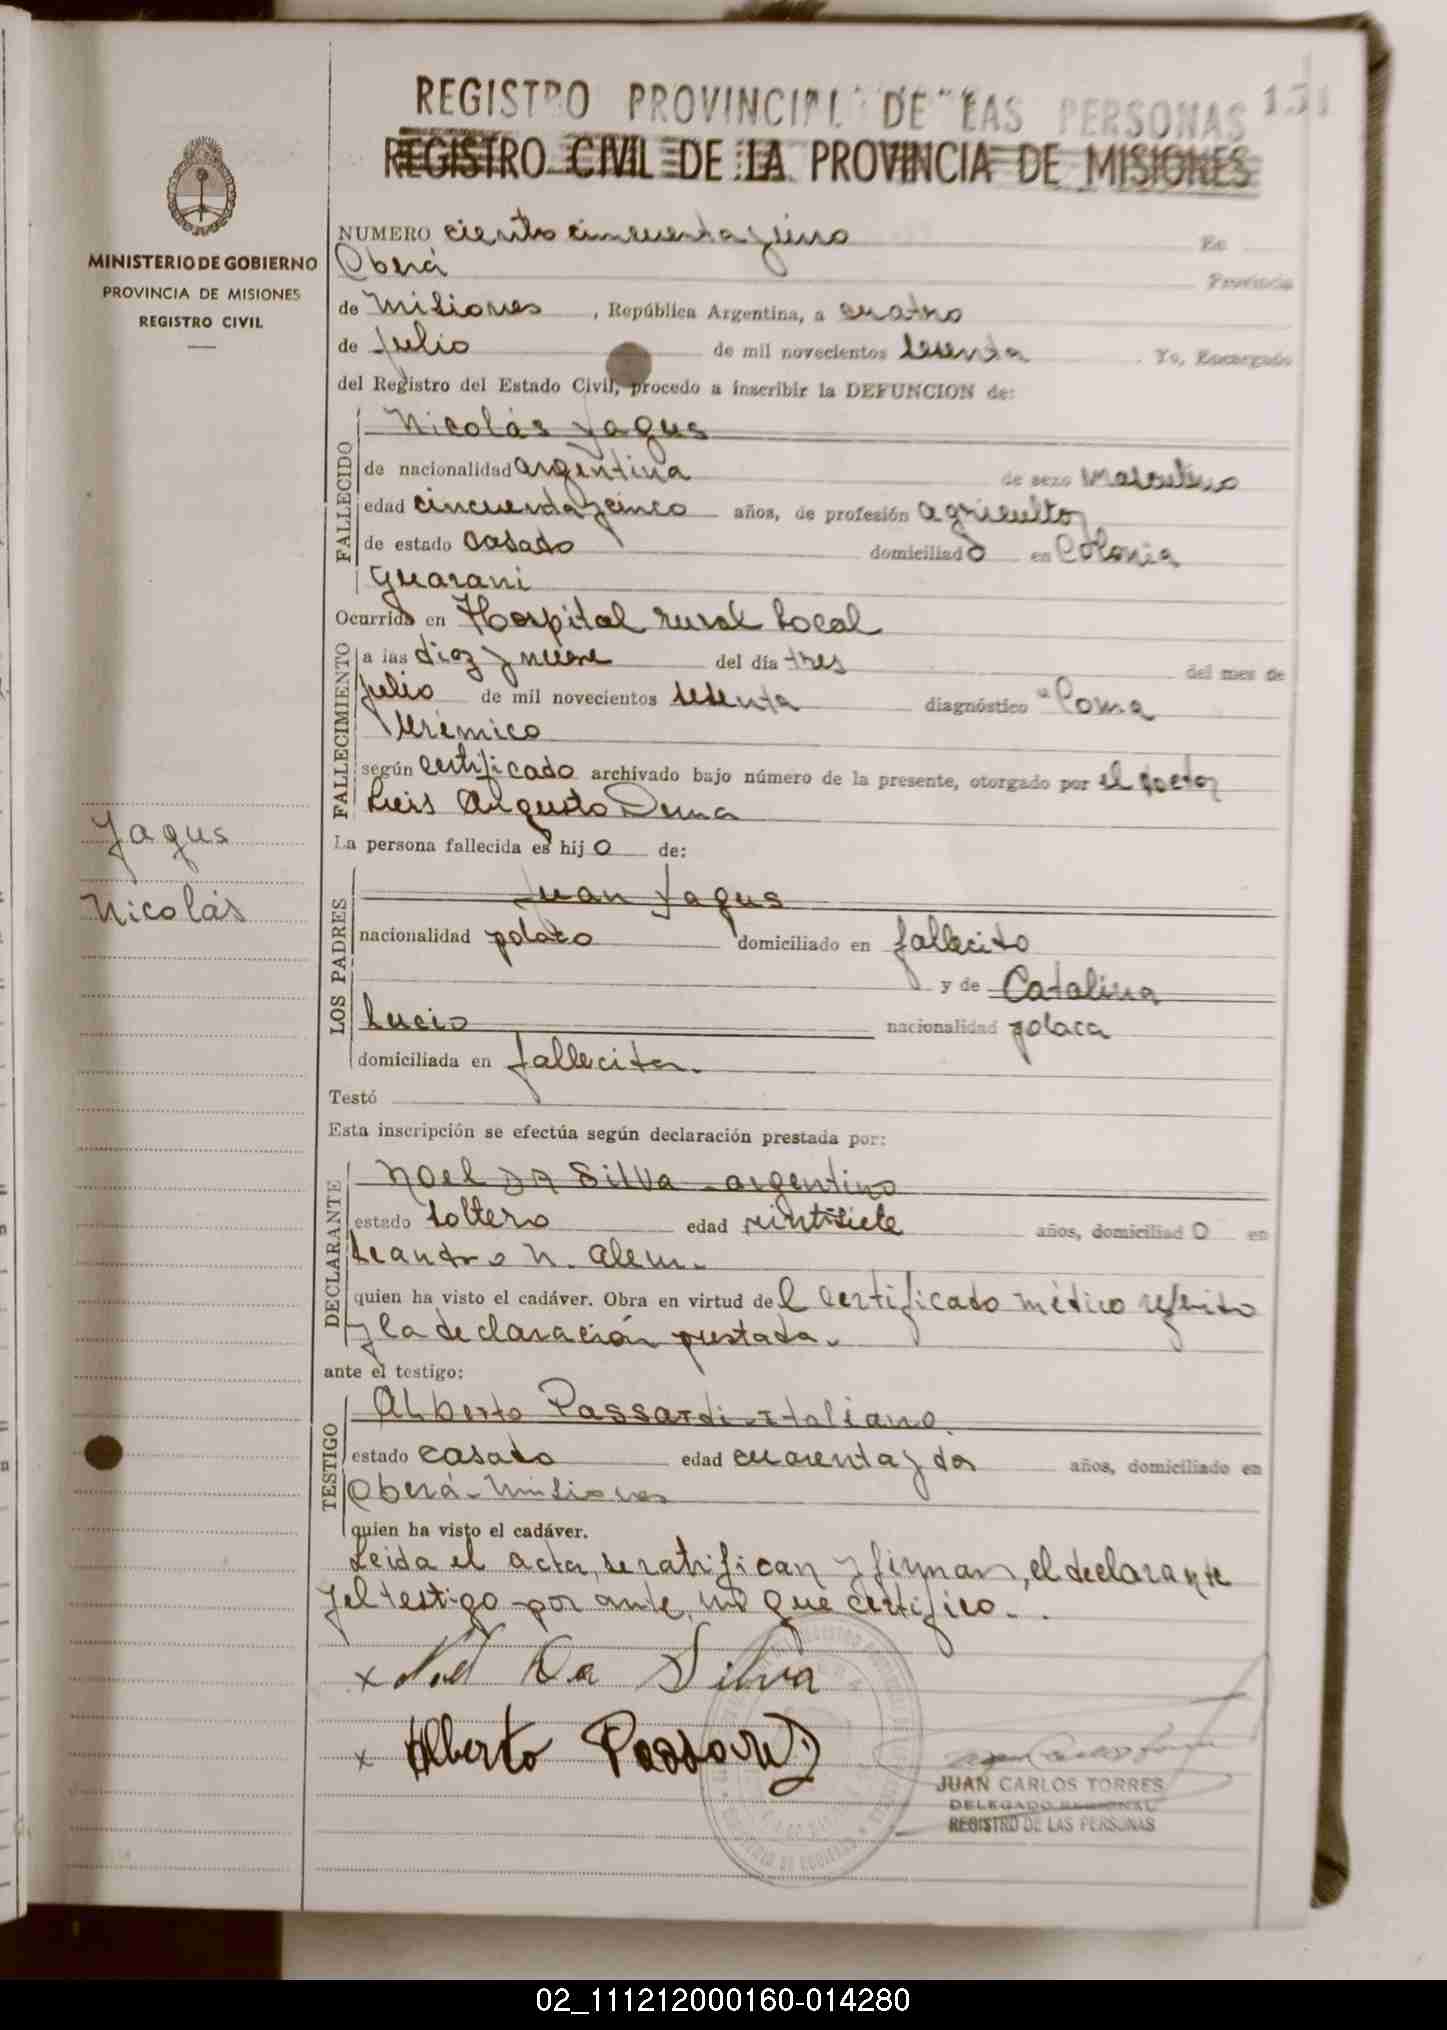 REGISTRO PROVINCIAL DE LAS PERSONAS 151
REGISTRO CIVIL DE LA PROVINCIA DE MISIONES
MINISTERIO DE GOBIERNO
PROVINCIA DE MISIONES
REGISTRO CIVIL
NUMERO ciento cincuenta y uno En
Oberá Provincia
de Misiones, República Argentina, a cuatro
de Julio de mil novecientos sesenta. Yo, Encargado
del Registro del Estado Civil, procedo a inscribir la DEFUNCION de:
FALLECIDO
Nicolás Jagus
de nacionalidad argentina de sexo masculino
edad cincuenta y cinco años, de profesión agricultor
de estado casado domiciliado en Colonia
Guarani
FALLECIMIENTO
Ocurrido en Hospital rural local
a las diez y nueve del día tres del mes de
Julio de mil novecientos sesenta diagnóstico "Coma
Urémico
según certificado archivado bajo número de la presente, otorgado por el doctor
Luis Augusto
Jagus
Nicolás
La persona fallecida es hijo de:
LOS PADRES
Juan Jagus
nacionalidad polaco domiciliado en fallecido
y de Catalina
Lucio nacionalidad polaca
domiciliada en fallecida.
Testó
Esta inscripción se efectúa según declaración prestada por:
DECLARANTE
Noel DA Silva - argentino
estado soltero edad veintisiete años, domiciliado en
Leandro N. Alem.-
quien ha visto el cadáver. Obra en virtud del certificado médico referido
y la declaración prestada.-
ante el testigo:
TESTIGO
Alberto Passardi - italiano
estado casado edad cuarenta y dos años, domiciliado en
Oberá - Misiones
quien ha visto el cadáver.
Leida el acta, se ratifican y firman, el declarante
y el testigo por ante, mi que certifico.-
x Noel Da Silva
x Alberto Passardi
JUAN CARLOS TORRES
DELEGADO REGIONAL
REGISTRO DE LAS PERSONAS
02_111212000160-014280